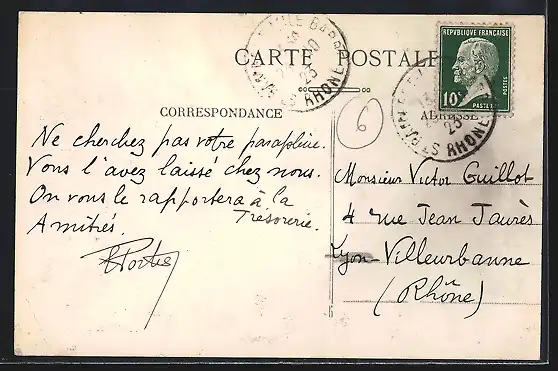 CARTE POSTALE
RÉPUBLIQUE FRANÇAISE
10c
POSTES
PASTEUR
RHONE
25
RHONE
25
CORRESPONDANCE
ADRESSE
6
Ne cherchez pas votre parapluie.
Vous l'avez laissé chez nous.
On vous le rapportera à la
Trésorerie.
Amitiés.
Monsieur Victor Guillot
4 rue Jean Jaurès
Lyon-Villeurbanne
(Rhône)